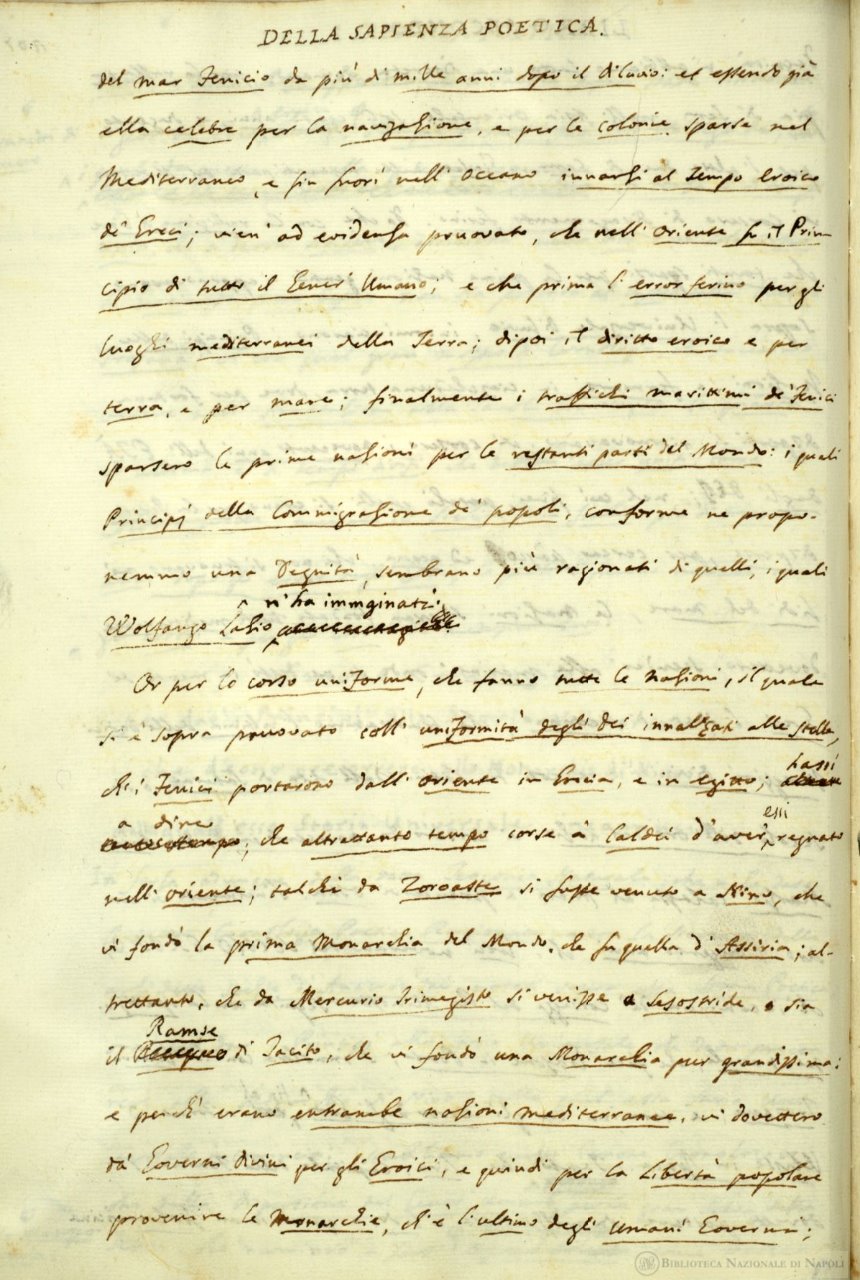 DELLA SAPIENZA POETICA.
del mar Fenicio da più di mille anni dopo il diluvio: et essendo già
ella celebre per la navigazione, e per le colonie sparse nel
Mediterraneo, e fin fuori nell' Oceano innanzi al tempo eroico
de' Greci; vien' ad evidenza pruovato, che nell' Oriente fu il Prin-
cipio di tutto il Gener' Umano; e che prima l' error ferino per gli
luoghi mediterranei della Terra; dipoi il diritto eroico e per
terra, e per mare; finalmente i traffichi marittimi de' Fenici
sparsero le prime nazioni per le restanti parti del Mondo: i quali
Principj della Commigrazione de' popoli, conforme ne propo-
nemmo una Degnità, sembrano più ragionati di quelli, i quali
n' ha immginati.
Wolfango Lazio
Or per lo corso uniforme, che fanno tutte le Nazioni, il quale
si è sopra pruovato coll' uniformità degli dei innalzati alle stelle,
ch' i Fenici portarono dall' Oriente in Grecia, e in Egitto; hassi
a dire, che altrettanto tempo corse a' Caldei d' aver essi regnato
nell' Oriente; talchè da Zoroaste si fusse venuto a Nino, che
vi fondò la prima Monarchia del Mondo, che fu quella d' Assiria; al-
trettanto, che da Mercurio Trimegisto si venisse a Sesostride, o sia
il Ramse di Tacito, che vi fondò una Monarchia pur grandissima:
e perchè erano entrambe nazioni mediterranee, vi dovettero
da' Governi divini per gli Eroici, e quindi per la Libertà popolare
provenire le Monarchie, ch' è l' ultimo degli Umani Governi;
BIBLIOTECA NAZIONALE DI NAPOLI